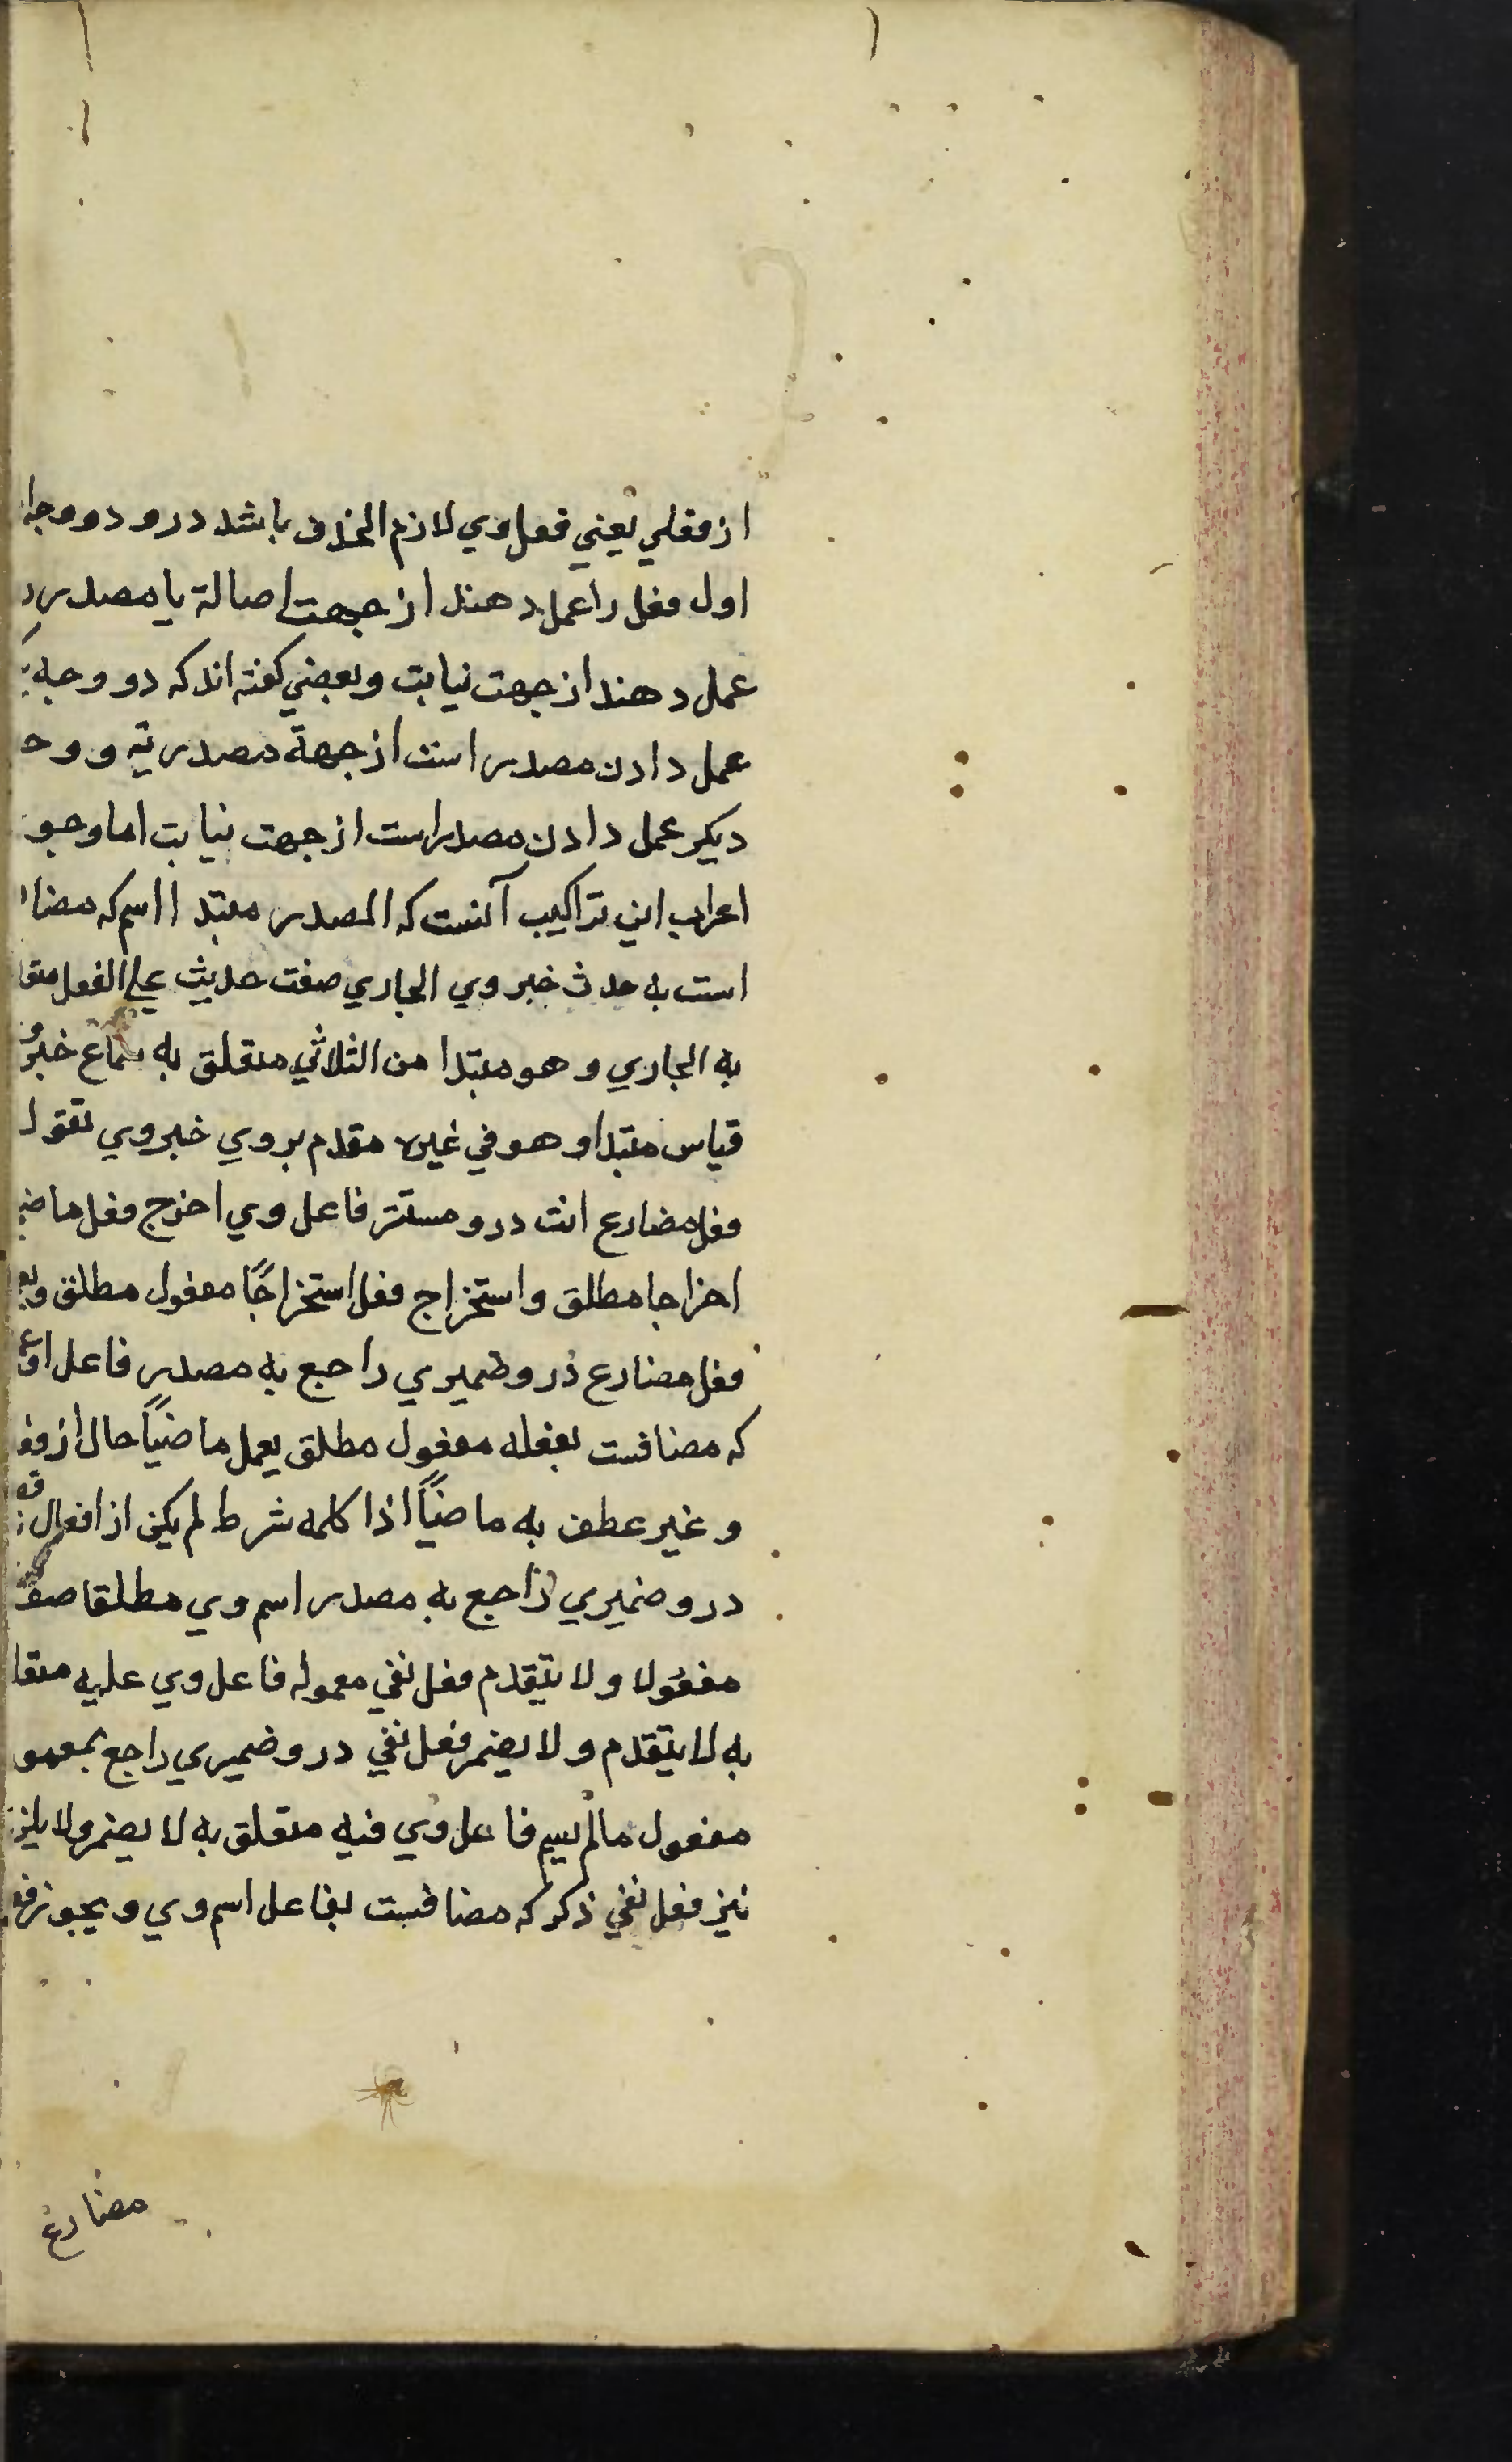 از فعلي يعني فعل وي لازم الحذف باشد درو دو وجه
اول فعل را عمل دهند از جهت اصالة يا مصدر را
عمل دهند از جهت نيابت و بعضي گفته اند كه دو وجه
عمل دادن مصدر است از جهة مصدريّة و وجه
ديكر عمل دادن مصدر است از جهت نيابت اما وجو
اعراب اين تراكيب آنست كه المصدر مبتدا اسم كه مضا
است به حدث خبر وي الجاري صفت حديث علي الفعل متعا
به الجاري و هو مبتدا من الثلاثي متعلق به سماع خبر و
قياس مبتدا و هو في غيره مقدم بر وي خبر وي تقول
فعل مضارع انت درو مستتر فاعل وي اخرج فعل ماضي
اخراجا مطلق و استخراج فعل استخراجًا مفعول مطلق و
فعل مضارع درو ضميري راجع به مصدر فاعل او
كه مضافست بفعله مفعول مطلق يعمل ماضيًا حال از فعل
و غير عطف به ماضيًا اذا كلمه شرط لم يكن از افعال
درو ضميري راجع به مصدر اسم وي مطلقا صفت
مفعولا و لا يتقدم فعل نفي معموله فاعل وي عليه متعا
به لا يتقدم و لا يضمر فعل نفي درو ضميري راجع بمعمو
مفعول ما لم يسم فاعل وي فيه متعلق به لا يضمر و لا يلزم
نيز فعل نفي ذكر كه مضافست بفاعل اسم وي و يجوز فع
مضارع